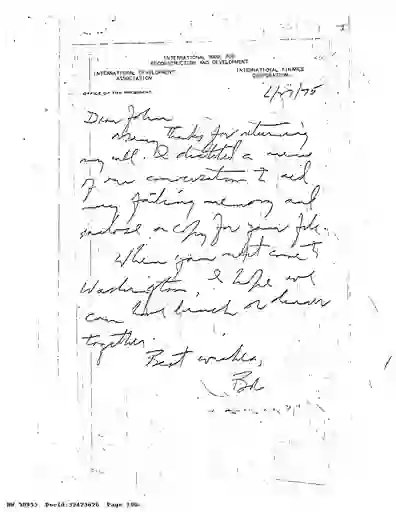 INTERNATIONAL BANK FOR
RECONSTRUCTION AND DEVELOPMENT
INTERNATIONAL DEVELOPMENT INTERNATIONAL FINANCE
ASSOCIATION CORPORATION
OFFICE OF THE PRESIDENT
Dear John
Many thanks for returning
my call. I dictated a memo
of our conversation to aid
my failing memory and
enclose a copy for your file.
When you next come to
Washington, I hope we
can have lunch or dinner
together.
Best wishes,
Bob
Page